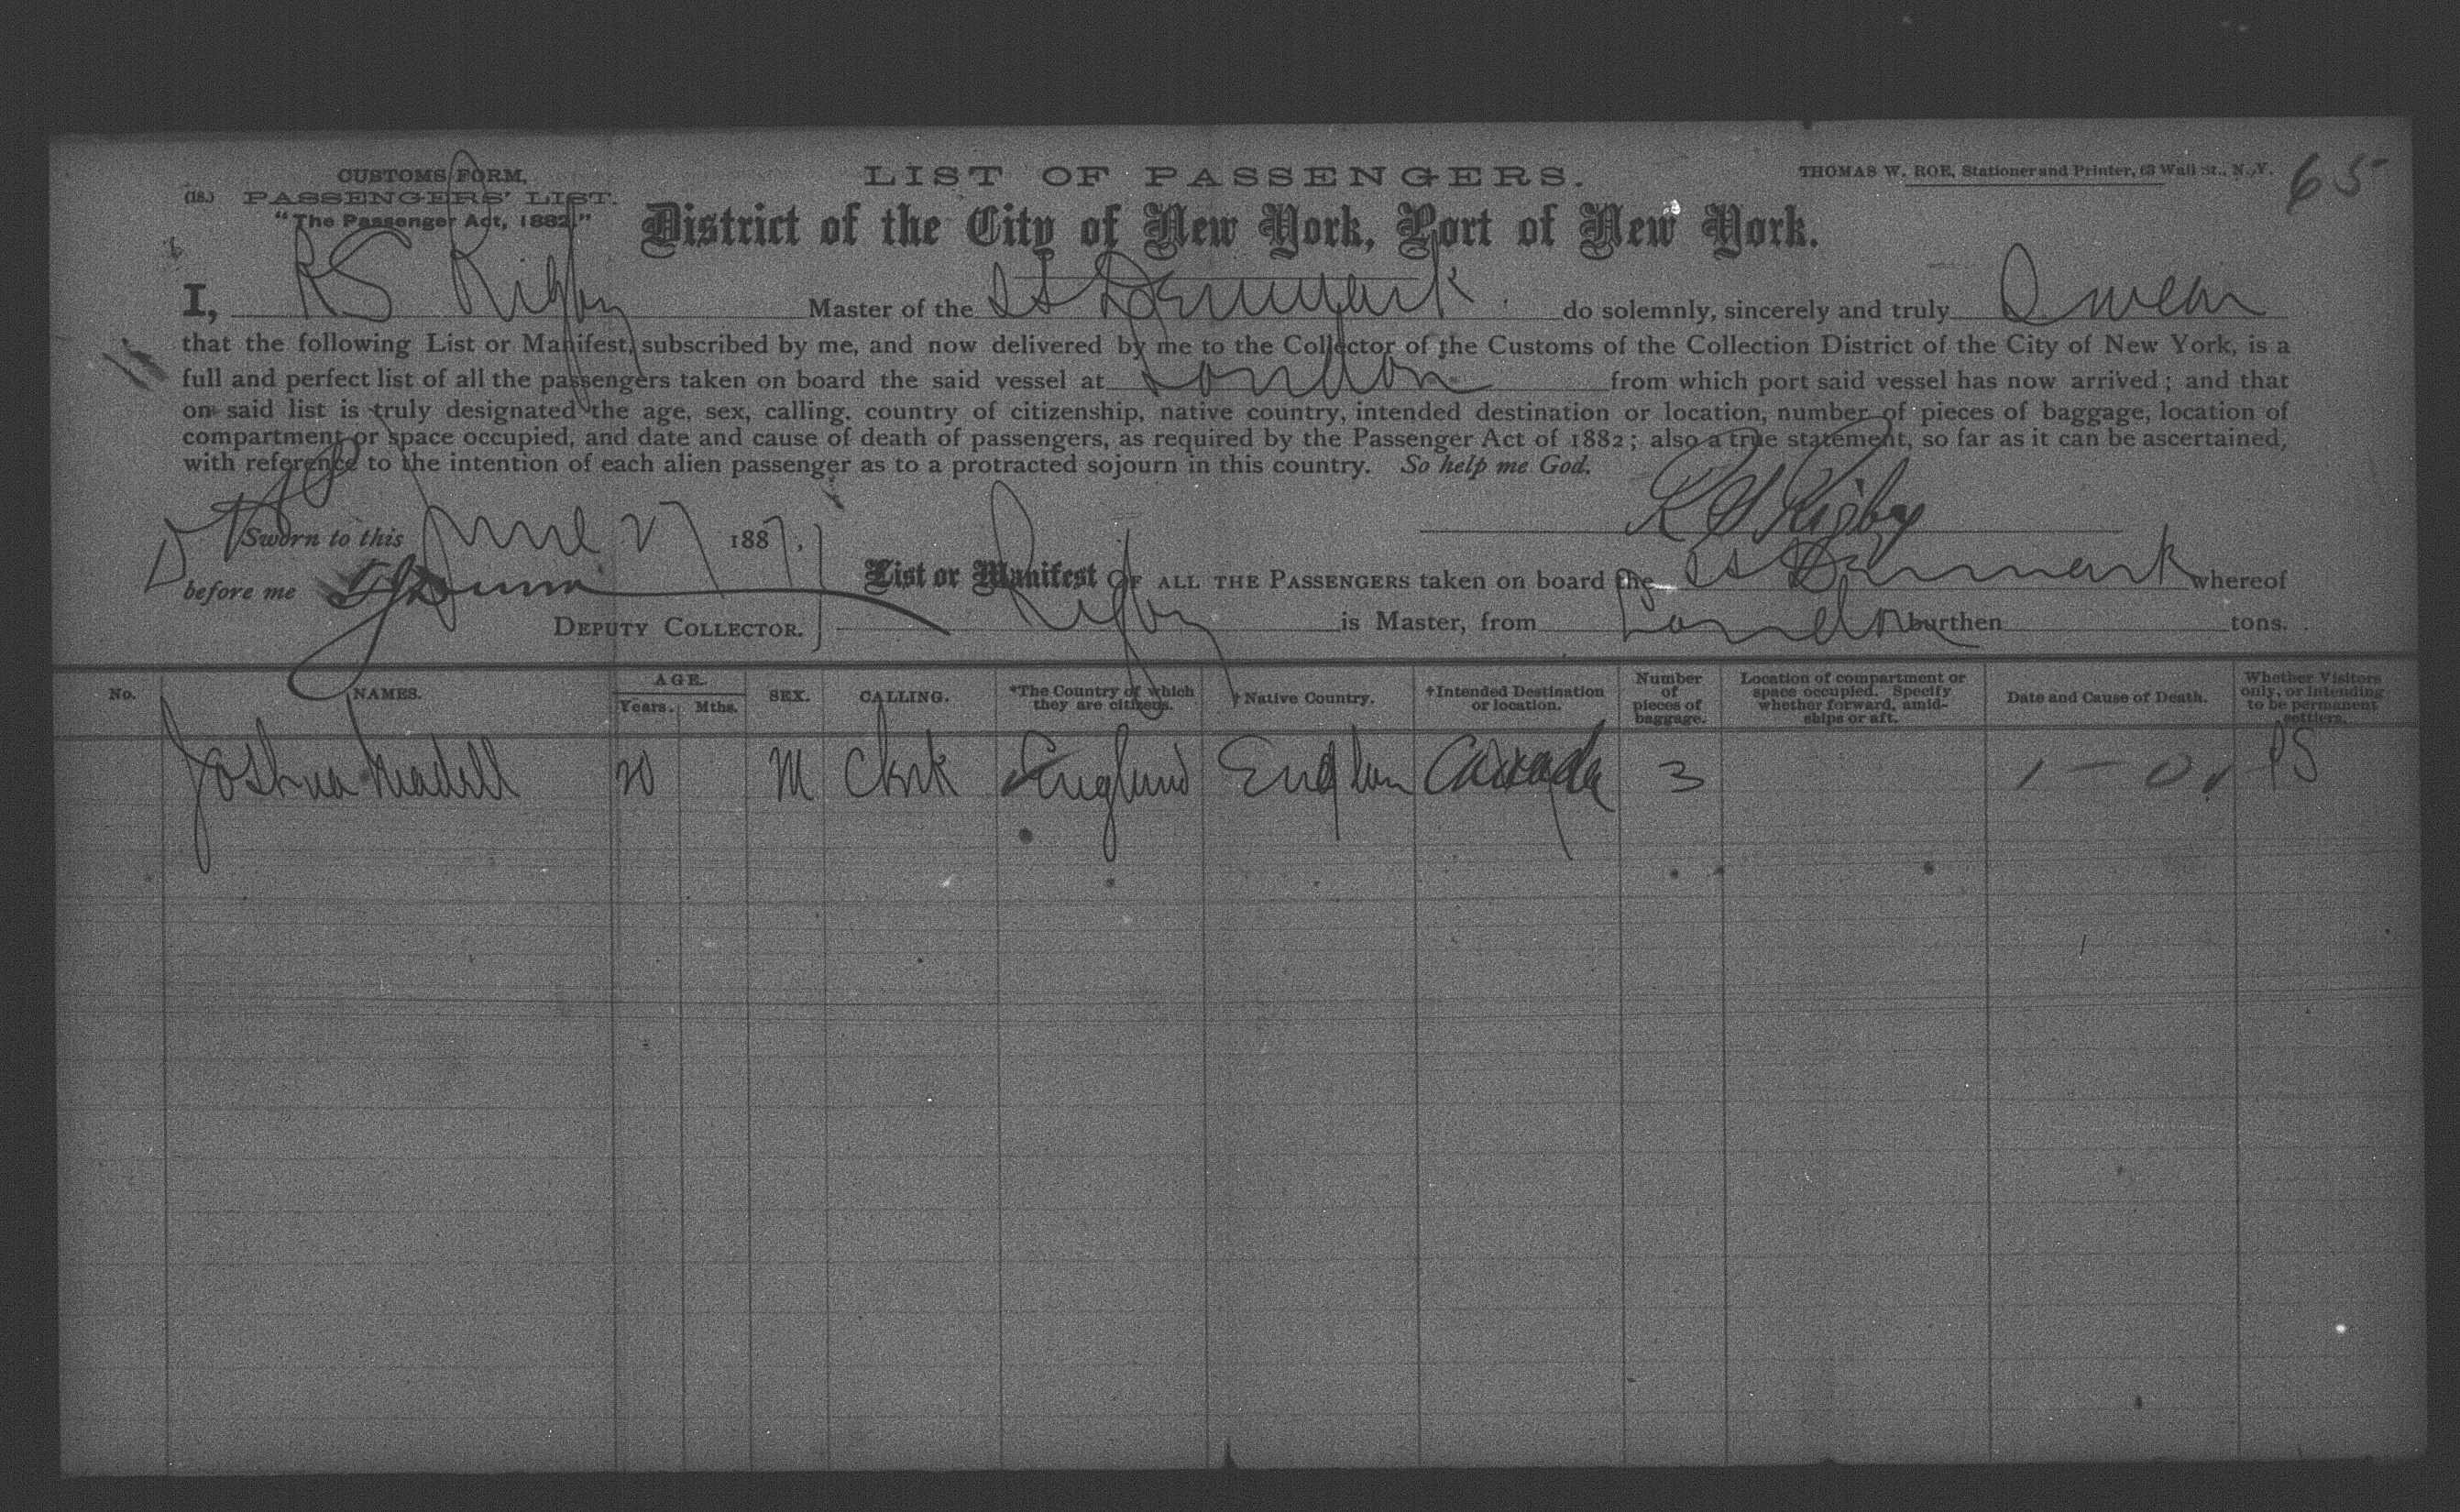 CUSTOMS FORM.
(18.) PASSENGERS' LIST.
"The Passenger Act, 1882."
LIST OF PASSENGERS.
THOMAS W. ROE, Stationer and Printer, 63 Wall St., N.Y.
65
District of the City of New York, Port of New York.
I, R S Rigby Master of the SS Denmark do solemnly, sincerely and truly Swear
that the following List or Manifest, subscribed by me, and now delivered by me to the Collector of the Customs of the Collection District of the City of New York, is a
full and perfect list of all the passengers taken on board the said vessel at London from which port said vessel has now arrived; and that
on said list is truly designated the age, sex, calling, country of citizenship, native country, intended destination or location, number of pieces of baggage, location of
compartment or space occupied, and date and cause of death of passengers, as required by the Passenger Act of 1882; also a true statement, so far as it can be ascertained,
with reference to the intention of each alien passenger as to a protracted sojourn in this country. So help me God.
R S Rigby
Sworn to this June 27 1887,
before me
DEPUTY COLLECTOR.
List or Manifest OF ALL THE PASSENGERS taken on board the SS Denmark whereof
Rigby is Master, from London burthen tons.
No. NAMES. AGE. Years. Mths. SEX. CALLING. *The Country of which they are citizens. †Native Country. †Intended Destination or location. Number of pieces of baggage. Location of compartment or space occupied. Specify whether forward, amidships or aft. Date and Cause of Death. Whether Visitors only, or intending to be permanent settlers.
Joshua 20 M Clerk England England Canada 3 PS